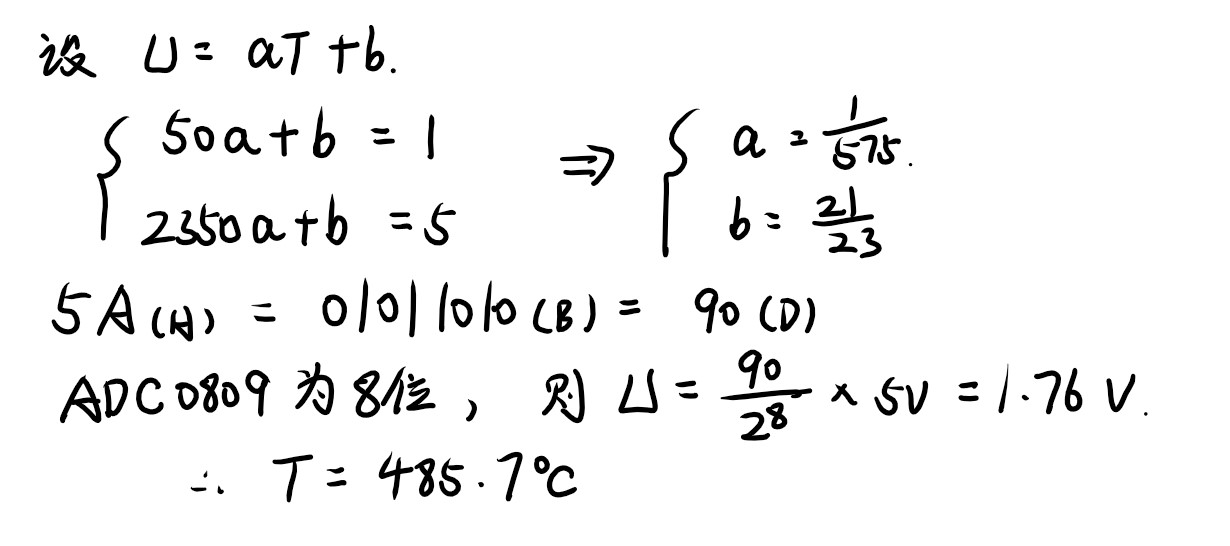 设 U = aT + b.
{ 50a + b = 1 ⇒ { a = 1/575.
2350a + b = 5 b = 21/23
5A(H) = 01011010(B) = 90(D)
ADC0809为8位, 则 U = 90/2⁸ × 5V = 1.76 V.
∴ T = 485.7℃